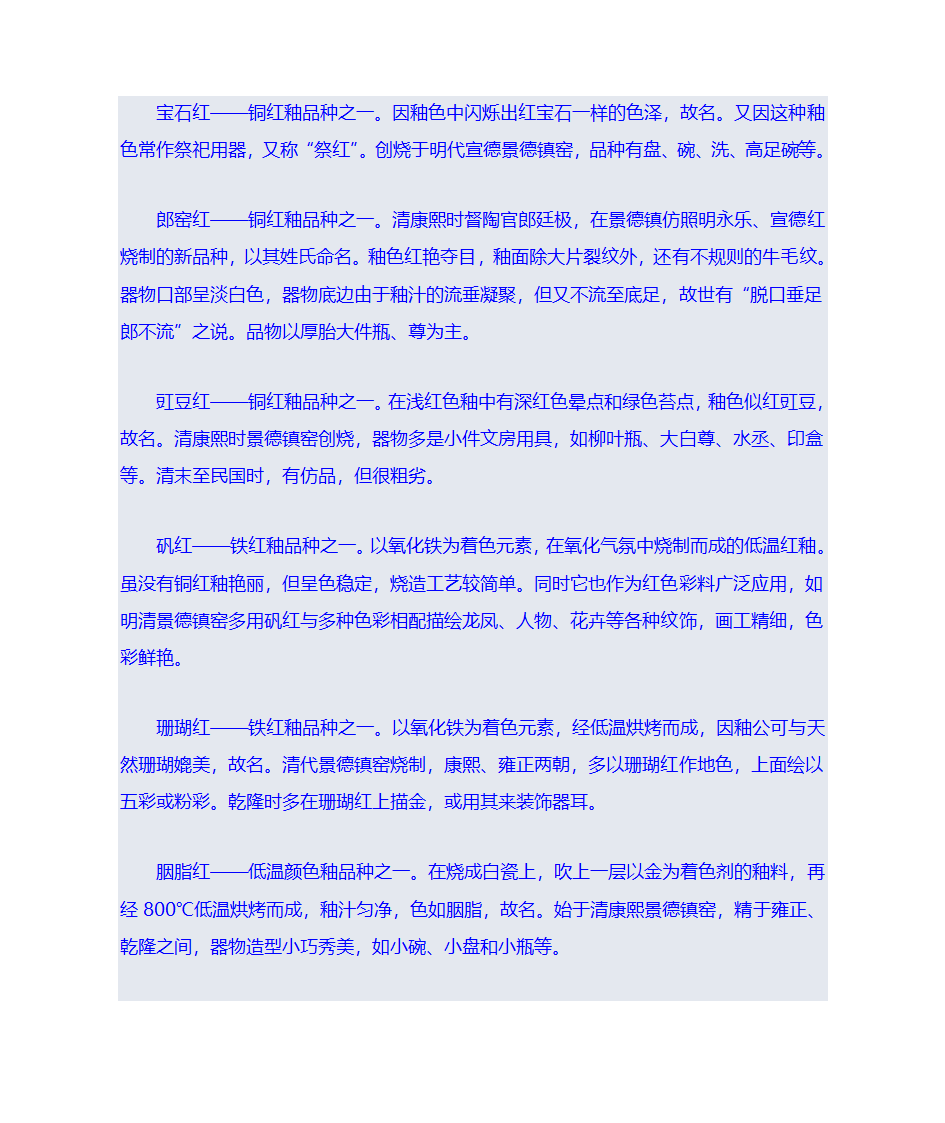 宝石红——铜红釉品种之一。因釉色中闪烁出红宝石一样的色泽，故名。又因这种釉
色常作祭祀用器，又称“祭红”。创烧于明代宣德景德镇窑，品种有盘、碗、洗、高足碗等。
郎窑红——铜红釉品种之一。清康熙时督陶官郎廷极，在景德镇仿照明永乐、宣德红
烧制的新品种，以其姓氏命名。釉色红艳夺目，釉面除大片裂纹外，还有不规则的牛毛纹。
器物口部呈淡白色，器物底边由于釉汁的流垂凝聚，但又不流至底足，故世有“脱口垂足
郎不流”之说。品物以厚胎大件瓶、尊为主。
豇豆红——铜红釉品种之一。在浅红色釉中有深红色晕点和绿色苔点，釉色似红豇豆，
故名。清康熙时景德镇窑创烧，器物多是小件文房用具，如柳叶瓶、大白尊、水丞、印盒
等。清末至民国时，有仿品，但很粗劣。
矾红——铁红釉品种之一。以氧化铁为着色元素，在氧化气氛中烧制而成的低温红釉。
虽没有铜红釉艳丽，但呈色稳定，烧造工艺较简单。同时它也作为红色彩料广泛应用，如
明清景德镇窑多用矾红与多种色彩相配描绘龙凤、人物、花卉等各种纹饰，画工精细，色
彩鲜艳。
珊瑚红——铁红釉品种之一。以氧化铁为着色元素，经低温烘烤而成，因釉公可与天
然珊瑚媲美，故名。清代景德镇窑烧制，康熙、雍正两朝，多以珊瑚红作地色，上面绘以
五彩或粉彩。乾隆时多在珊瑚红上描金，或用其来装饰器耳。
胭脂红——低温颜色釉品种之一。在烧成白瓷上，吹上一层以金为着色剂的釉料，再
经 800℃低温烘烤而成，釉汁匀净，色如胭脂，故名。始于清康熙景德镇窑，精于雍正、
乾隆之间，器物造型小巧秀美，如小碗、小盘和小瓶等。